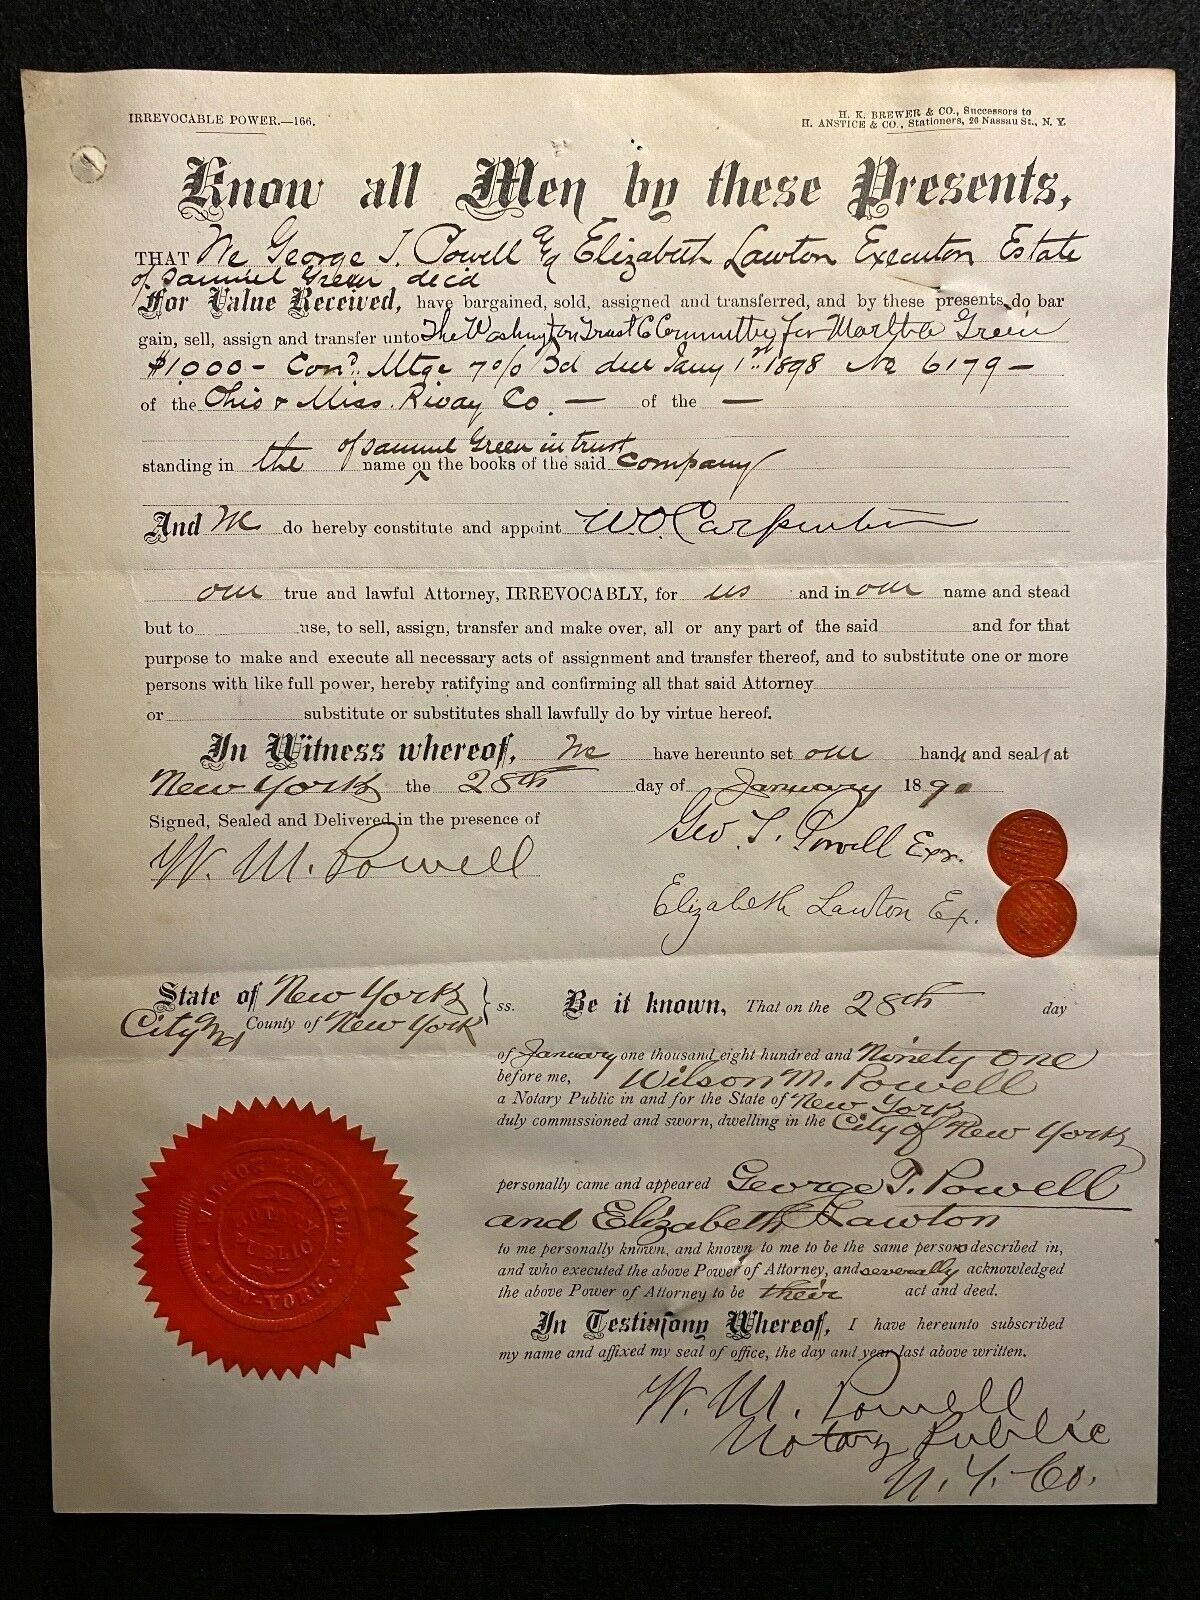 IRREVOCABLE POWER.—166.
H. K. BREWER & CO., Successors to
H. ANSTICE & CO., Stationers, 26 Nassau St., N. Y.
Know all Men by these Presents,
THAT We George T. Powell & Elizabeth Lawton Executors Estate
of Samuel Green decd
For Value Received, have bargained, sold, assigned and transferred, and by these presents do bar
gain, sell, assign and transfer unto The Washington Trust Co Committee for Martha Green
$1,000 - Con. Mtge 7% Bd due Jany 1st 1898 No 6179 —
of the Ohio & Miss. Rway Co. — of the —
of Samuel Green in trust
standing in the name ‸ on the books of the said company
And We do hereby constitute and appoint W. O. Carpenter
our true and lawful Attorney, IRREVOCABLY, for us and in our name and stead
but to use, to sell, assign, transfer and make over, all or any part of the said and for that
purpose to make and execute all necessary acts of assignment and transfer thereof, and to substitute one or more
persons with like full power, hereby ratifying and confirming all that said Attorney
or substitute or substitutes shall lawfully do by virtue hereof.
In Witness whereof, We have hereunto set our hands and seals at
New York the 28th day of January 1891
Signed, Sealed and Delivered in the presence of
W. M. Powell
Geo. T. Powell Exr.
Elizabeth Lawton Ex.
State of New York } ss.
City and County of New York
Be it known, That on the 28th day
of January one thousand eight hundred and Ninety One
before me, Wilson M. Powell
a Notary Public in and for the State of New York
duly commissioned and sworn, dwelling in the City of New York
personally came and appeared George T. Powell
and Elizabeth Lawton
to me personally known, and known to me to be the same persons described in,
and who executed the above Power of Attorney, and severally acknowledged
the above Power of Attorney to be their act and deed.
In Testimony Whereof, I have hereunto subscribed
my name and affixed my seal of office, the day and year last above written.
W. M. Powell
Notary Public
N. Y. Co.
WILSON M. POWELL
NOTARY
PUBLIC
NEW-YORK.